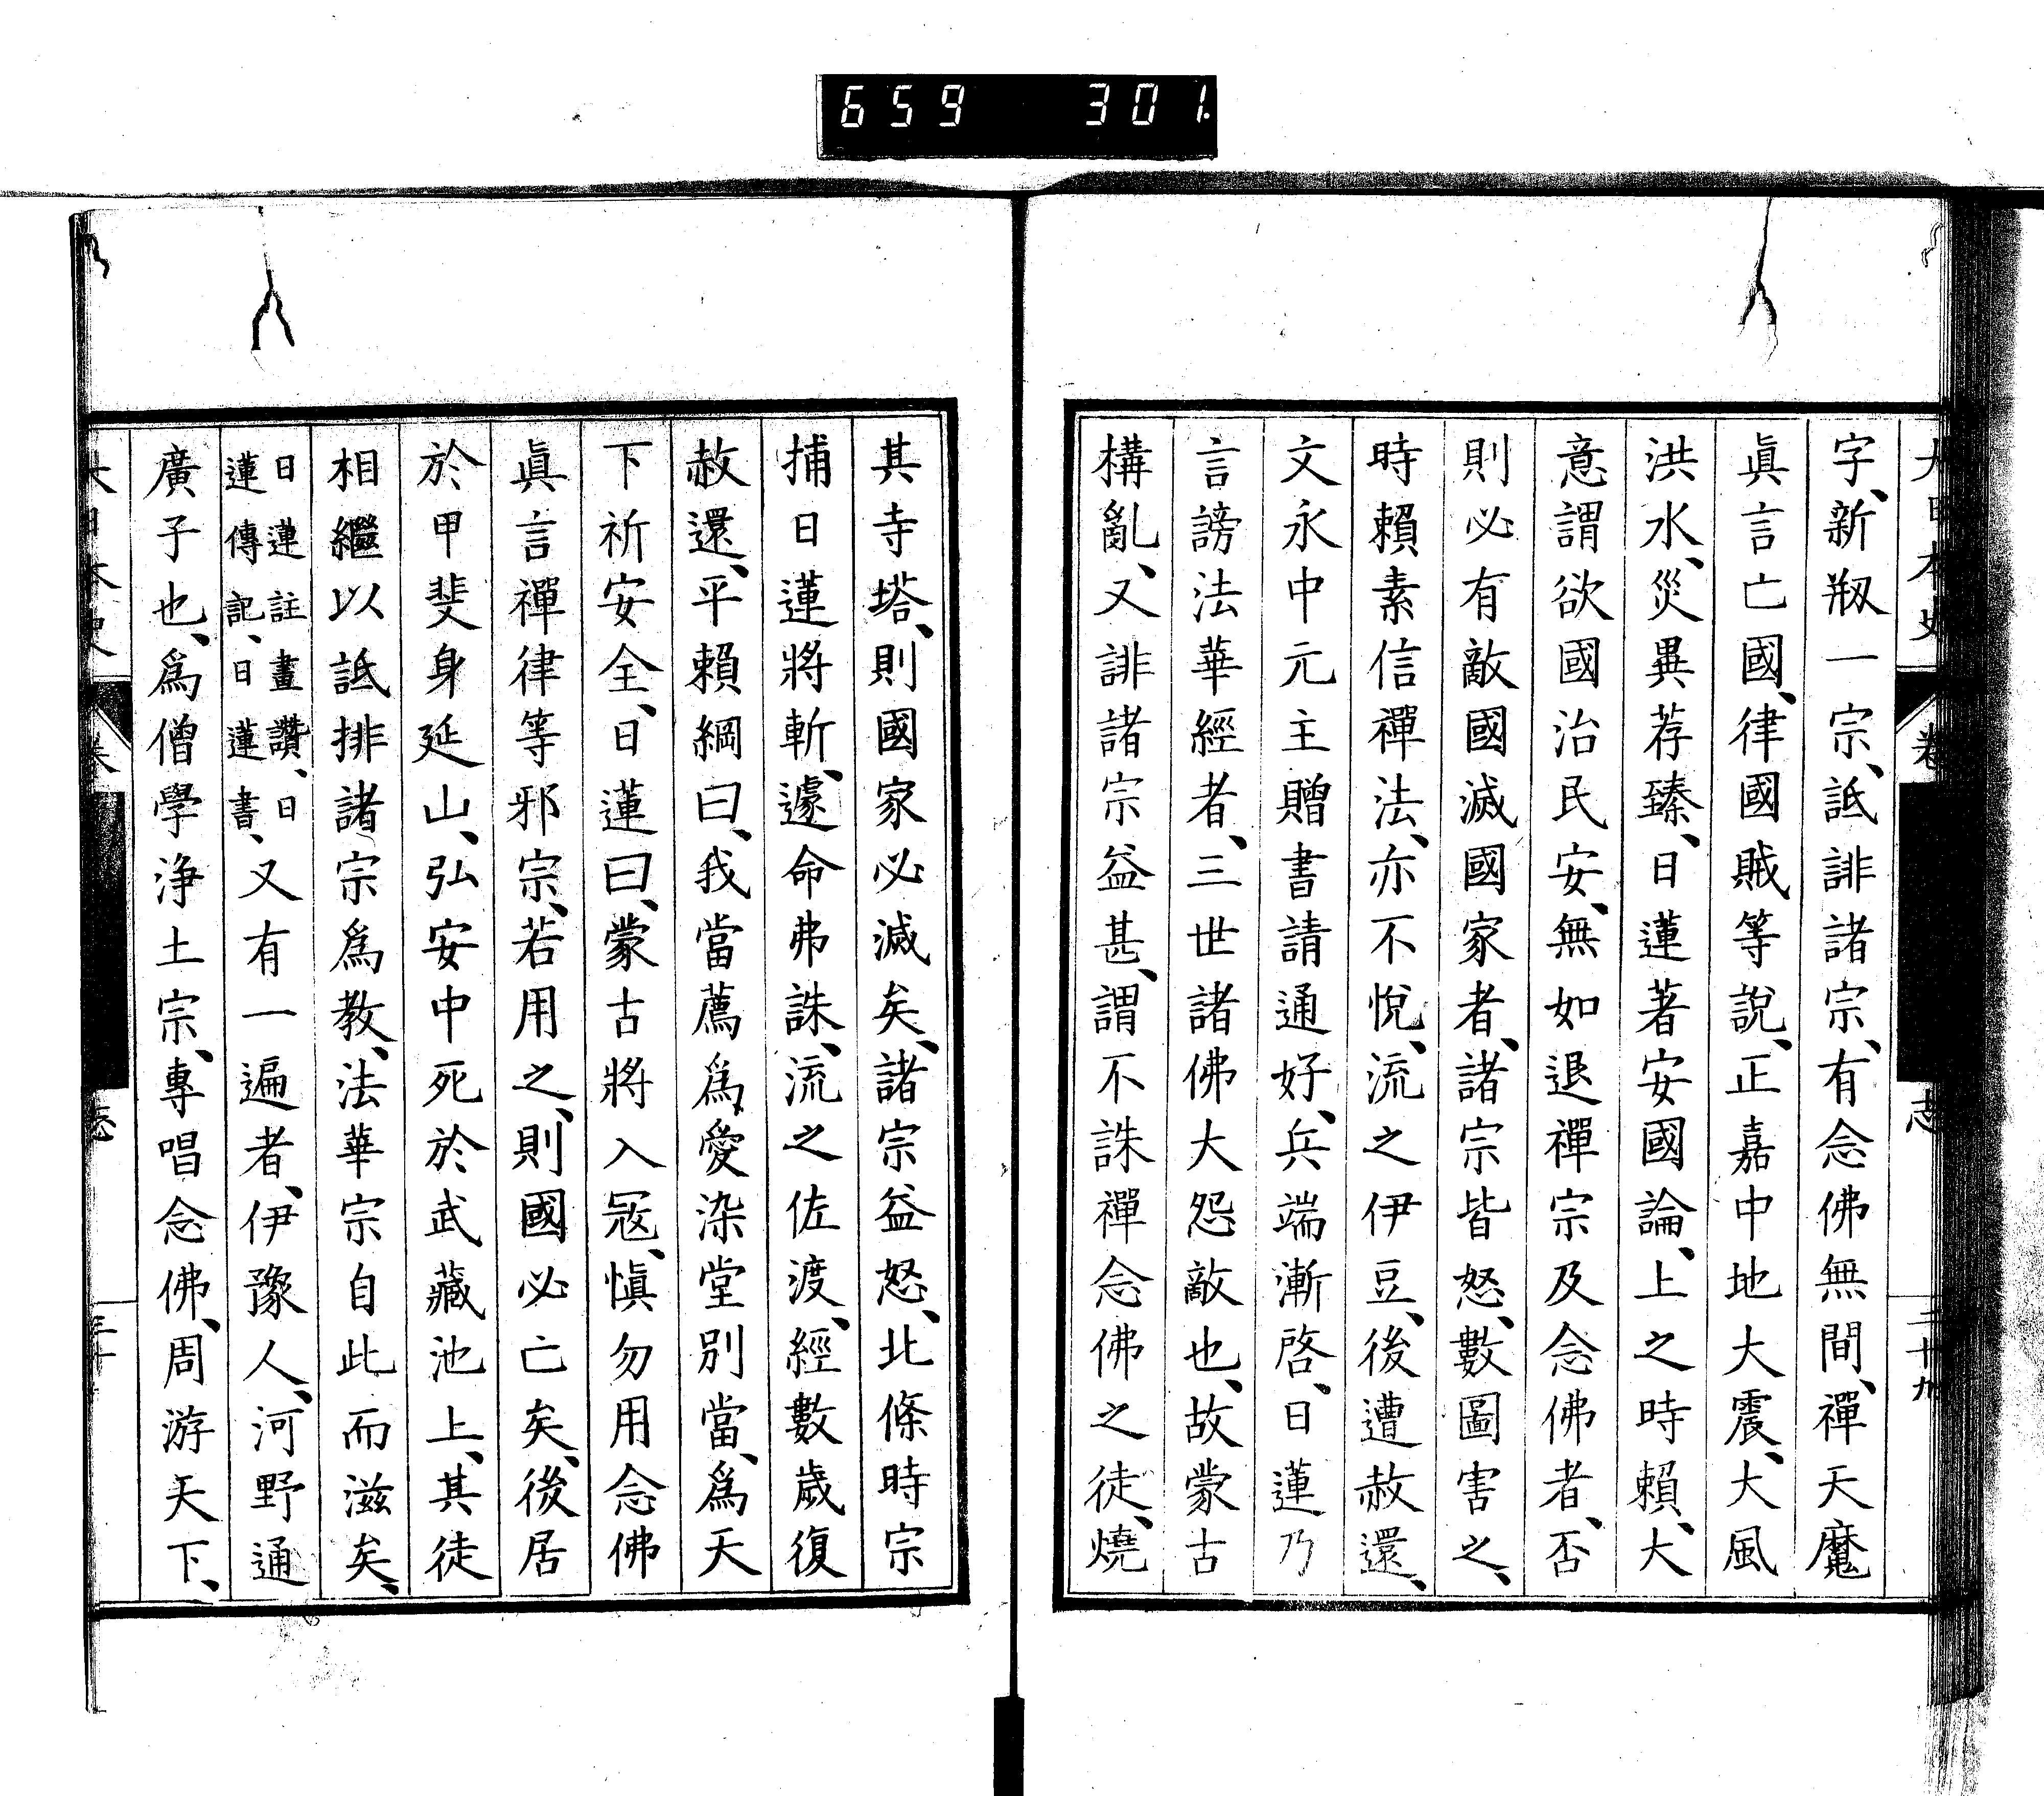 659 301
大日本史 卷 志 二十九
字、新剏一宗、詆誹諸宗、有念佛無間、禪天魔
眞言亡國、律國賊等說、正嘉中地大震、大風
洪水、災異荐臻、日蓮著安國論、上之時賴、大
意謂欲國治民安、無如退禪宗及念佛者、否
則必有敵國滅國家者、諸宗皆怒、數圖害之、
時賴素信禪法、亦不悅、流之伊豆、後遭赦還、
文永中元主贈書請通好、兵端漸啓、日蓮乃
言謗法華經者、三世諸佛大怨敵也、故蒙古
構亂、又誹諸宗益甚、謂不誅禪念佛之徒、燒
其寺塔、則國家必滅矣、諸宗益怒、北條時宗
捕日蓮將斬、遽命弗誅、流之佐渡、經數歲復
赦還、平賴綱曰、我當薦爲愛染堂別當、爲天
下祈安全、日蓮曰、蒙古將入寇、愼勿用念佛
眞言禪律等邪宗、若用之、則國必亡矣、後居
於甲斐身延山、弘安中死於武藏池上、其徒
相繼以詆排諸宗爲敎、法華宗自此而滋矣、
日蓮註畫讚、日
蓮傳記、日蓮書、又有一遍者、伊豫人、河野通
廣子也、爲僧學淨土宗、專唱念佛、周游天下、
大日本史 卷 志 三十